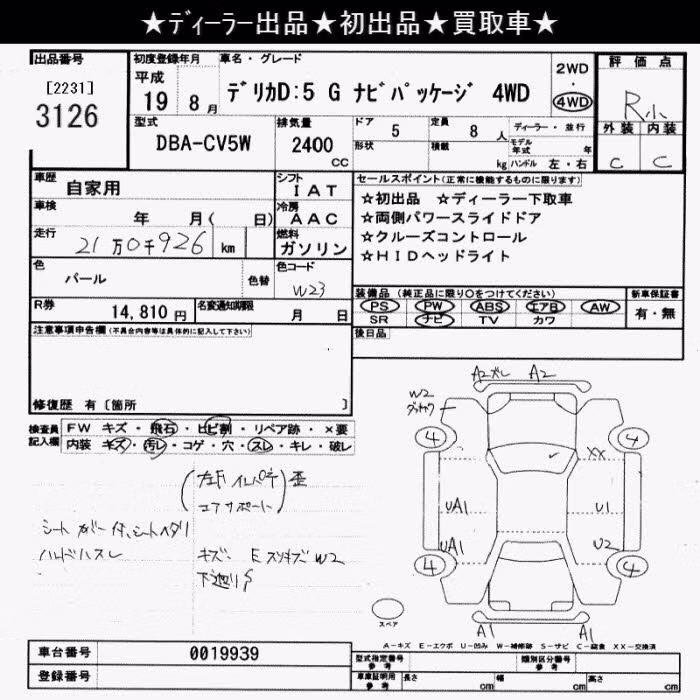 ★ディーラー出品★初出品★買取車★
出品番号
[2231]
3126
初度登録年月
平成
19 8月
車名・グレード
デリカD:5 G ナビパッケージ 4WD
2WD
・
4WD
評価点
R小
外装 内装
C C
型式
DBA-CV5W
排気量
2400
cc
ドア 5
形状
定員 8人
積載 kg
ディーラー・並行
モデル年式 年
ハンドル 左・右
車歴
自家用
シフト
IAT
車検
年 月( 日)
冷房
AAC
走行
21万0千926 km
燃料
ガソリン
セールスポイント(正常に機能するものに限ります)
☆初出品 ☆ディーラー下取車
☆両側パワースライドドア
☆クルーズコントロール
☆HIDヘッドライト
色
パール
色替
色コード
W23
R券
14,810円
名変通知期限
月 日
装備品(純正品に限り○をつけてください)
PS PW ABS エアB AW
SR ナビ TV カワ
新車保証書
有・無
後日品
注意事項申告欄(不具合内容等は具体的に記入して下さい)
修復歴 有[箇所 ]
検査員記入欄
FW キズ・飛石・ヒビ割・リペア跡・×要
内装 キズ・汚レ・コゲ・穴・スレ・キレ・破レ
歪
コアサポート
シートカバー付、シートヘタリ
ハンドルスレ
キズ、Eスリキズ W2
下廻りS
A2ズレ A2
W2
4 4
XX
UA1 U1
UA1 U2
4 4
A1 A1
スペア
A-キズ E-エクボ U-凹み W-補修跡 S-サビ C-腐食 XX-交換済
車台番号
0019939
登録番号
型式指定番号
参考
類別区分番号
参考
車庫証明用
参考
長さ cm
幅 cm
高さ cm